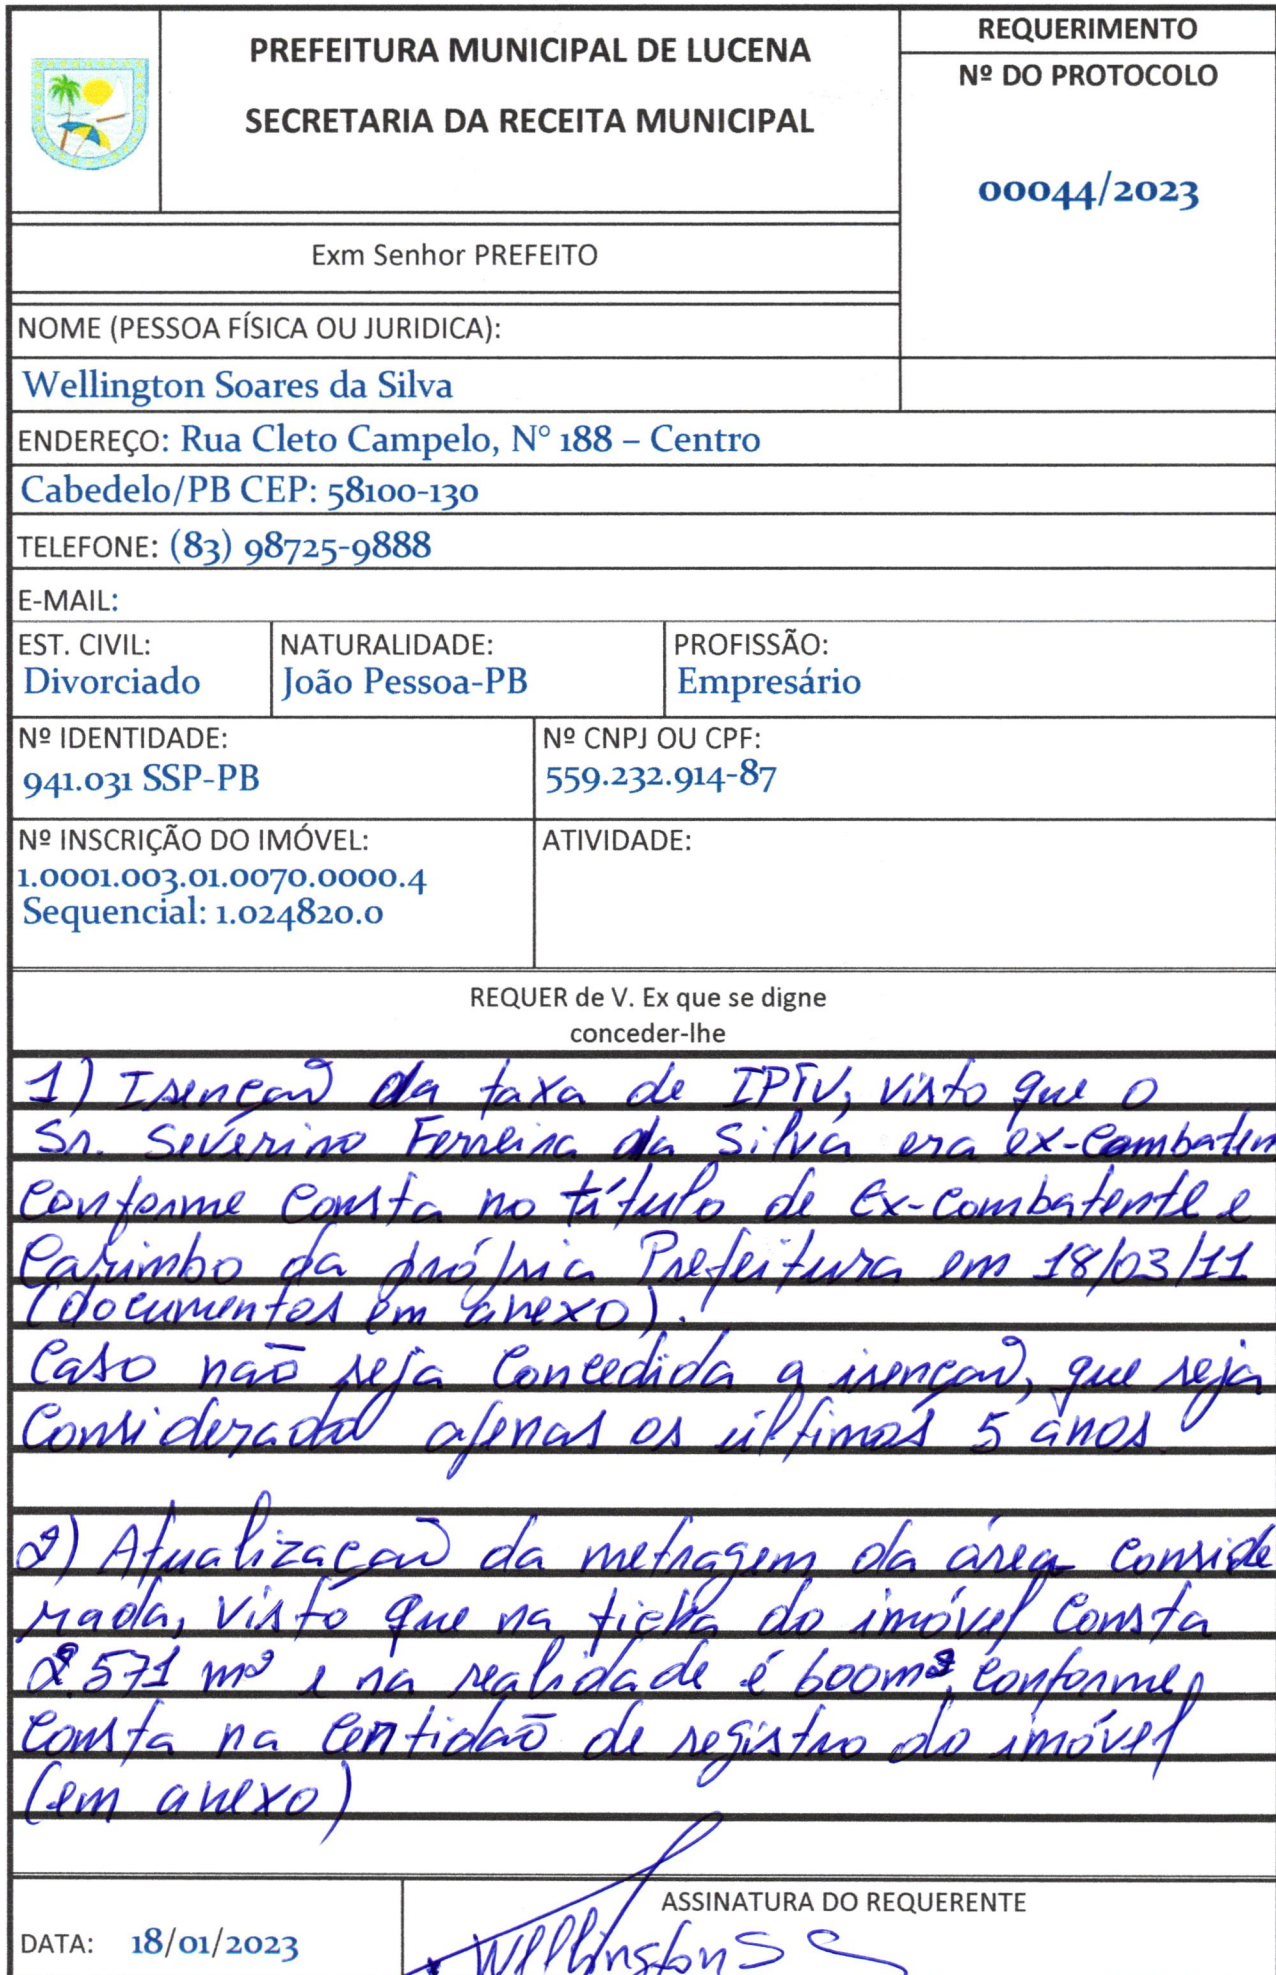 PREFEITURA MUNICIPAL DE LUCENA
SECRETARIA DA RECEITA MUNICIPAL
REQUERIMENTO
Nº DO PROTOCOLO
00044/2023
Exm Senhor PREFEITO
NOME (PESSOA FÍSICA OU JURIDICA):
Wellington Soares da Silva
ENDEREÇO: Rua Cleto Campelo, N° 188 – Centro
Cabedelo/PB CEP: 58100-130
TELEFONE: (83) 98725-9888
E-MAIL:
EST. CIVIL:
Divorciado
NATURALIDADE:
João Pessoa-PB
PROFISSÃO:
Empresário
Nº IDENTIDADE:
941.031 SSP-PB
Nº CNPJ OU CPF:
559.232.914-87
Nº INSCRIÇÃO DO IMÓVEL:
1.0001.003.01.0070.0000.4
Sequencial: 1.024820.0
ATIVIDADE:
REQUER de V. Ex que se digne
conceder-lhe
1) Isenção da taxa de IPTU, visto que o
Sr. Severino Ferreira da Silva era ex-Combaten
conforme consta no título de Ex-combatente e
Carimbo da própria Prefeitura em 18/03/11
(documentos em anexo).
Caso não seja concedida a isenção, que seja
Considerado apenas os últimos 5 anos.
2) Atualização da metragem da área conside
rada, visto que na ficha do imóvel consta
2.571 m² e na realidade é 600m², conforme
consta na certidão de registro do imóvel
(em anexo)
DATA: 18/01/2023
ASSINATURA DO REQUERENTE
Wellington S S